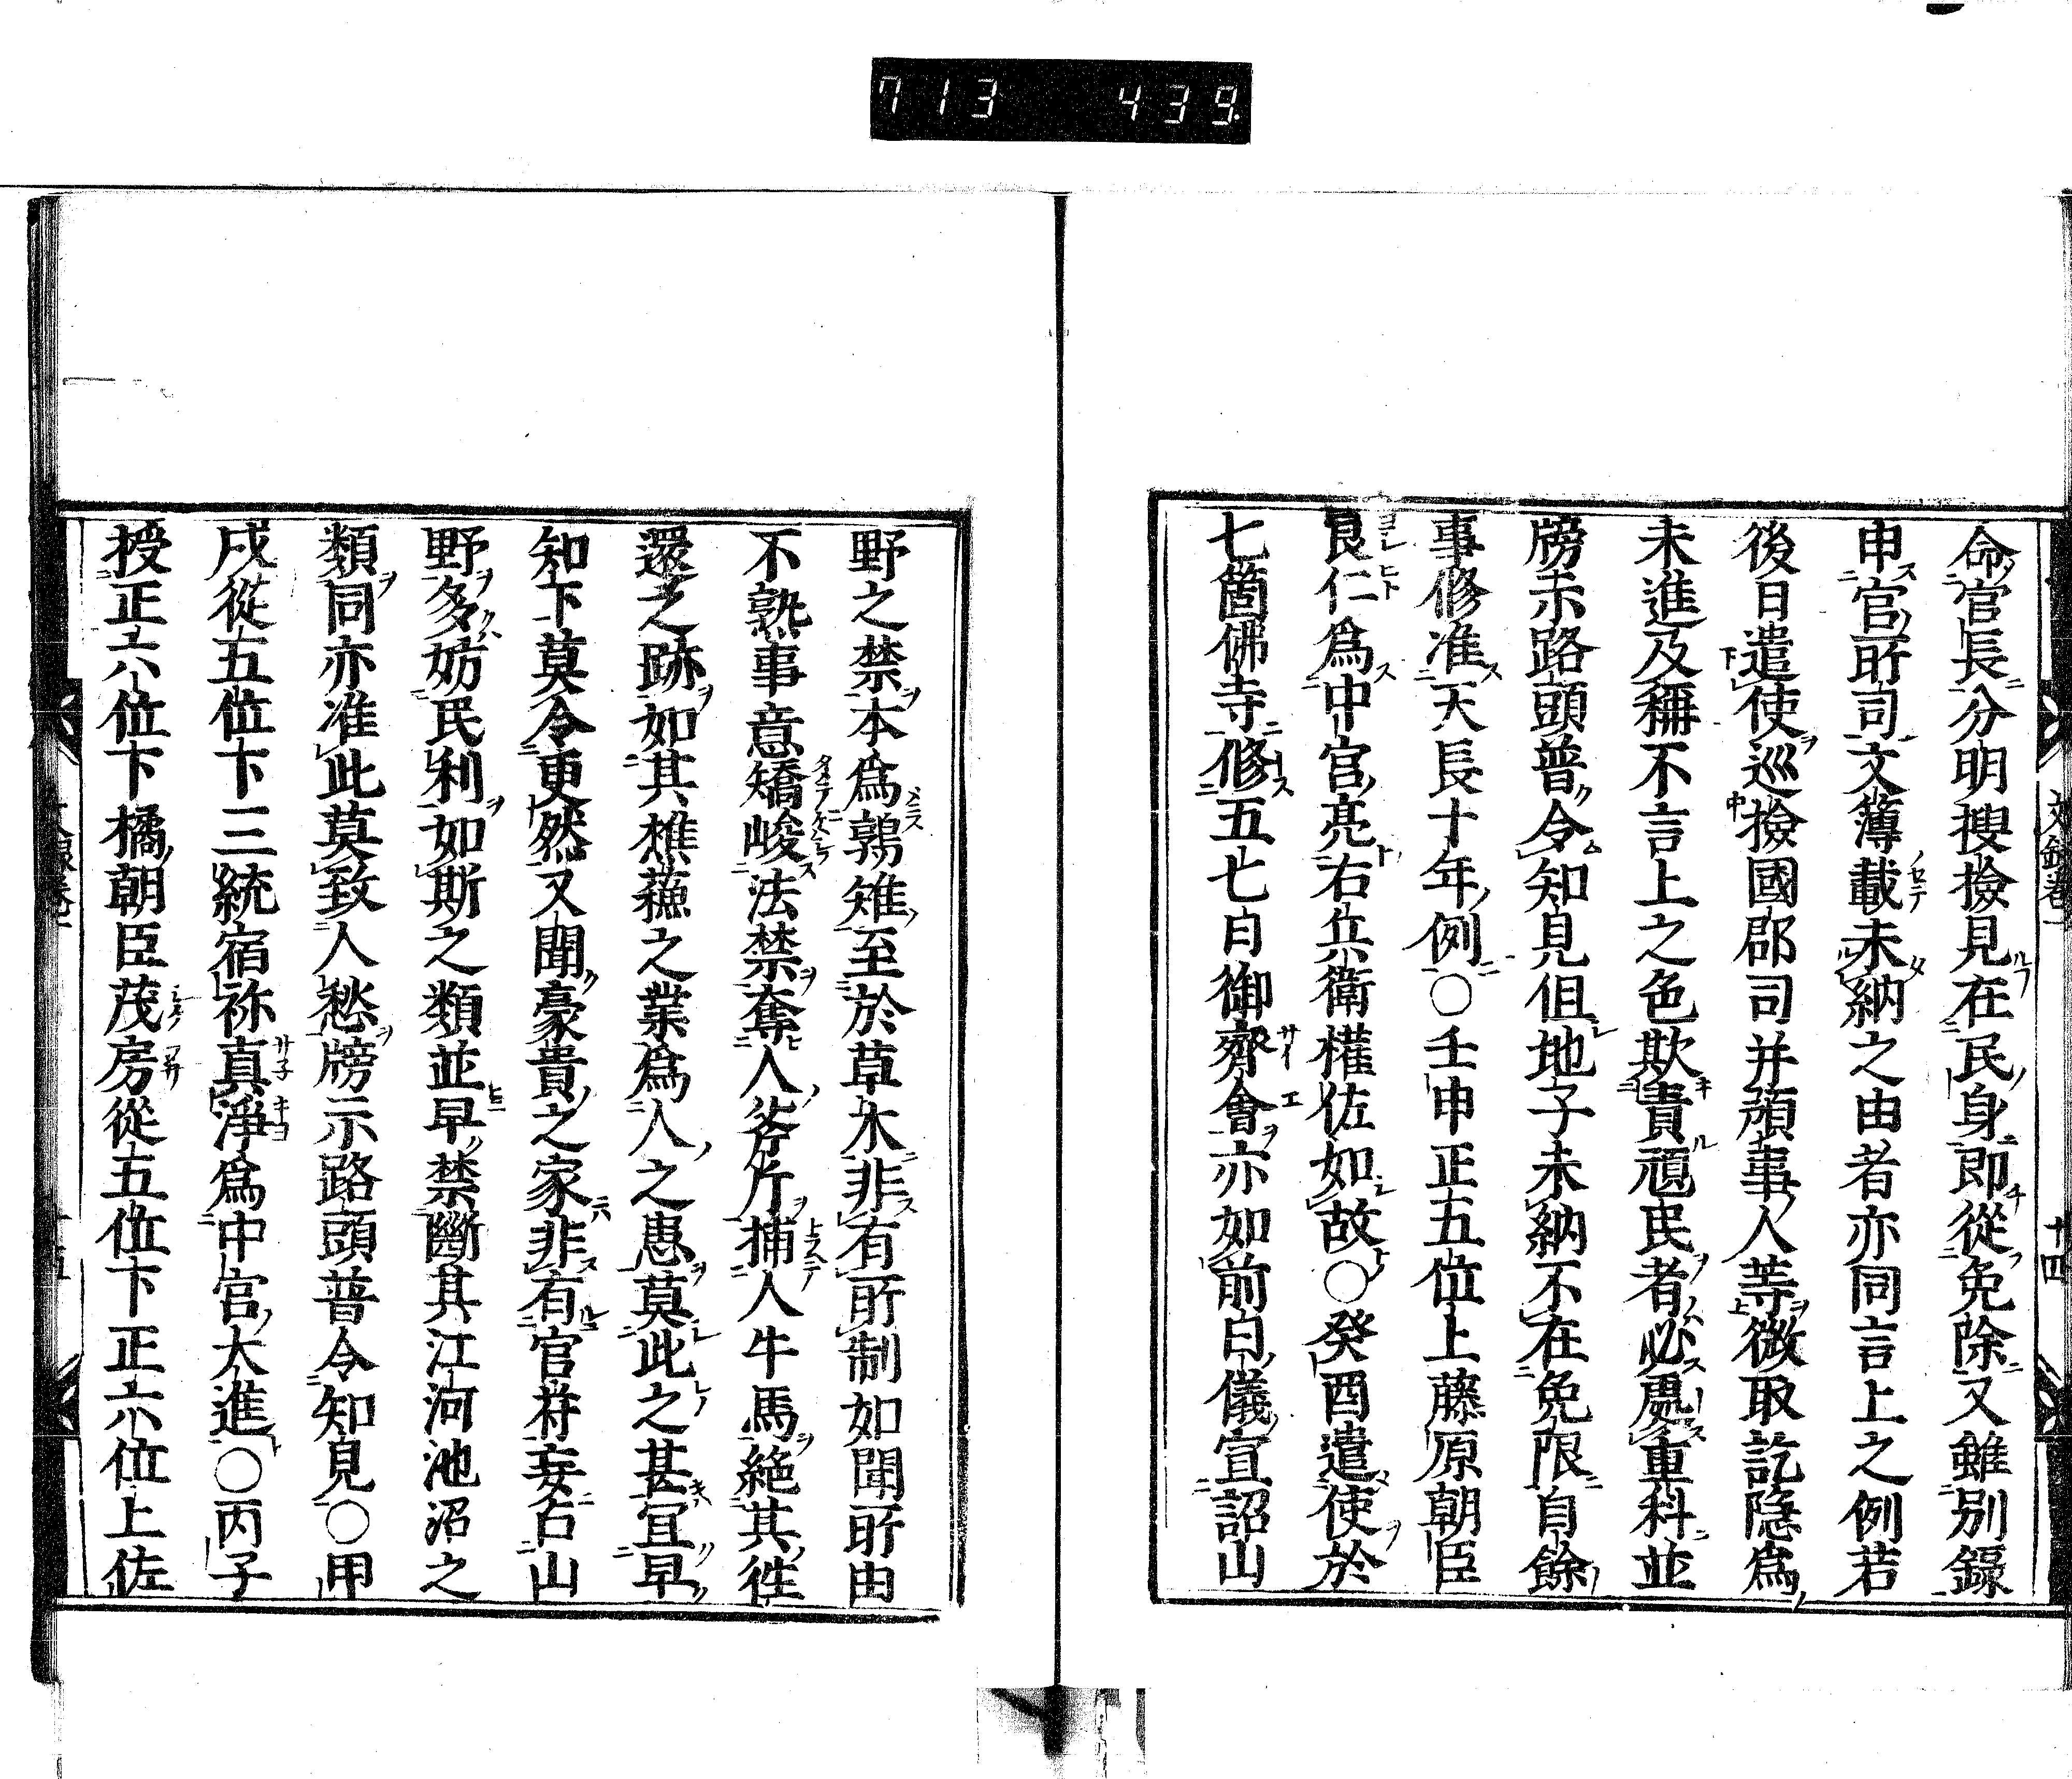 713 439
文録卷一 十四
命官長分明搜撿見在民身即從免除又雖別録
申官所司文簿載未納之由者亦同言上之例若
後日遣使巡撿國郡司并預事人等徴取訖隱爲
未進及稱不言上之色欺貴愿民者必處重科並
牓示路頭普令知見但地子未納不在免限自餘
事修准天長十年例〇壬申正五位上藤原朝臣
良仁爲中宮亮右兵衛權佐如故〇癸酉遣使於
七箇佛寺修五七日御齋會亦如前日儀宣詔山
野之禁本爲鶉雉至於草木非有所制如聞所由
不熟事意矯峻法禁奪人斧斤捕人牛馬絶其徃
還之跡如其樵蘓之業爲人之患莫此之甚宜早
知下莫令更然又聞豪貴之家非有官符妄占山
野多妨民利如斯之類並早禁斷其江河池沼之
類同亦准此莫致人愁牓示路頭普令知見〇甲
戌從五位下三統宿祢真淨爲中宮大進〇丙子
授正六位下橘朝臣茂房從五位下正六位上佐